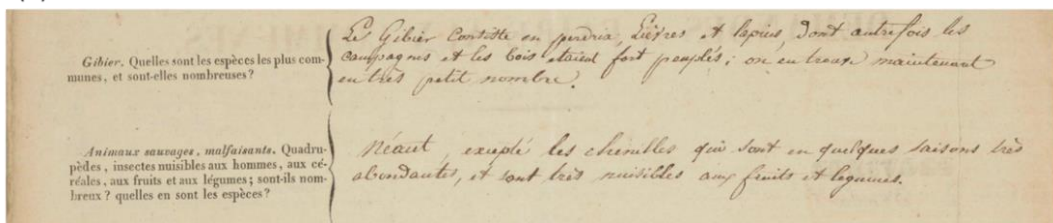 Gibier. Quelles sont les espèces les plus com-
munes, et sont-elles nombreuses?
Le Gibier Consiste en perdrix, Lièvres et lapins, dont autrefois les
Campagnes et les bois étaient fort peuplés; on en trouve maintenant
en très petit nombre.
Animaux sauvages, malfaisants. Quadru-
pèdes, insectes nuisibles aux hommes, aux cé-
réales, aux fruits et aux légumes; sont-ils nom-
breux? quelles en sont les espèces?
Néant, excepté les chenilles qui sont en quelques saisons très
abondantes, et sont très nuisibles aux fruits et légumes.